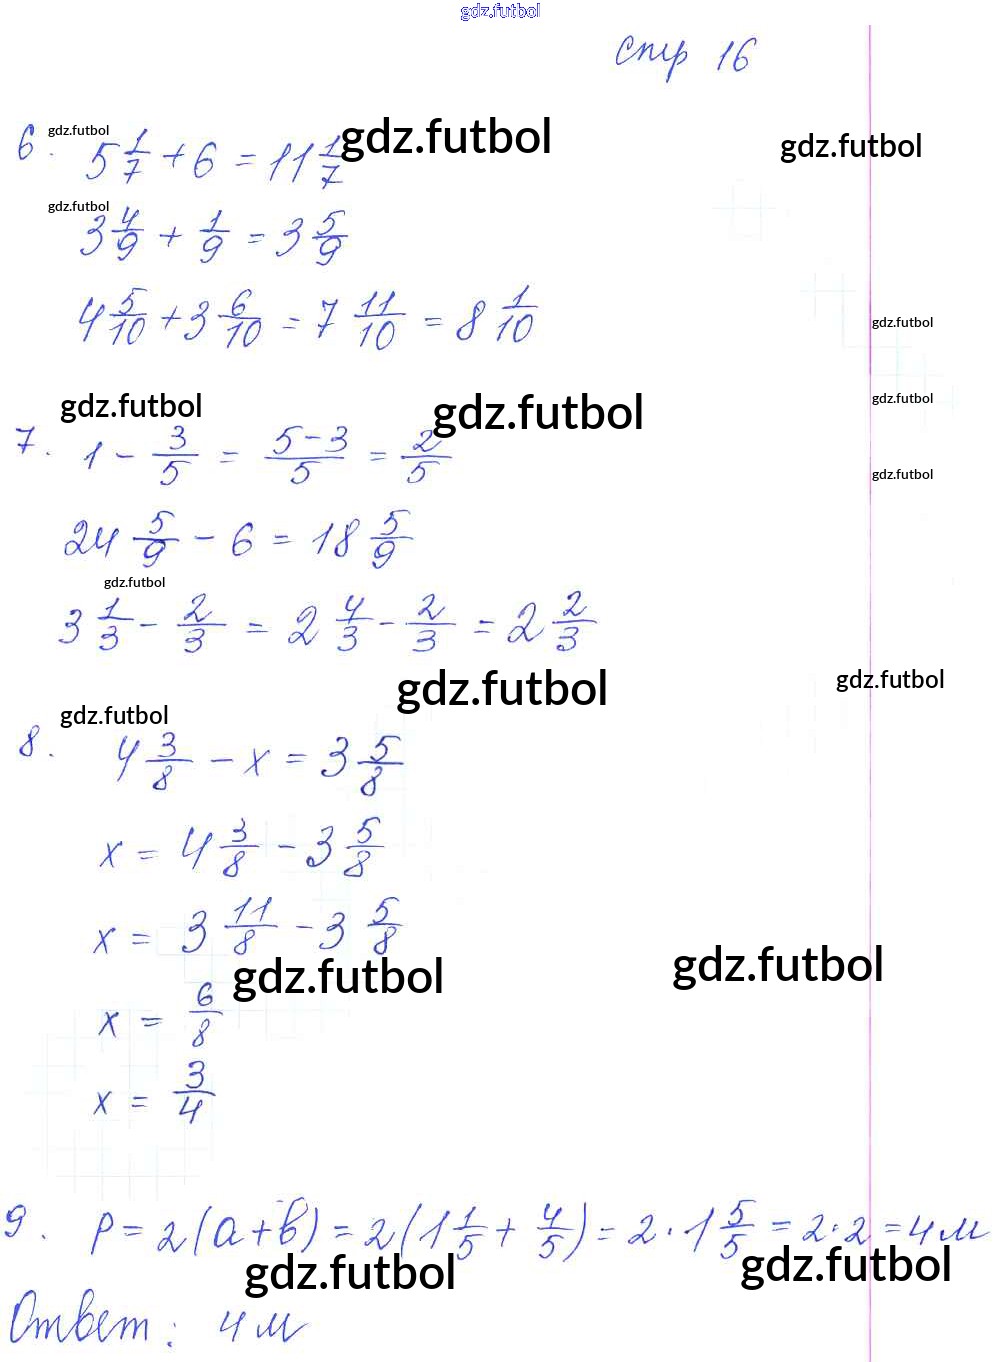 gdz.futbol
стр 16
gdz.futbol
gdz.futbol
gdz.futbol
6. 5 1/7 + 6 = 11 1/7
gdz.futbol
3 4/9 + 1/9 = 3 5/9
4 5/10 + 3 6/10 = 7 11/10 = 8 1/10
gdz.futbol
gdz.futbol
gdz.futbol
gdz.futbol
7. 1 - 3/5 = (5-3)/5 = 2/5
gdz.futbol
24 5/9 - 6 = 18 5/9
gdz.futbol
3 1/3 - 2/3 = 2 4/3 - 2/3 = 2 2/3
gdz.futbol
gdz.futbol
gdz.futbol
8. 4 3/8 - x = 3 5/8
x = 4 3/8 - 3 5/8
x = 3 11/8 - 3 5/8
gdz.futbol
gdz.futbol
x = 6/8
x = 3/4
9. P = 2(a+b) = 2(1 1/5 + 4/5) = 2·1 5/5 = 2·2 = 4 м
gdz.futbol
gdz.futbol
Ответ: 4 м